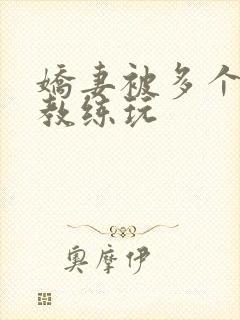 嬌妻被多个
教练玩
奥摩伊